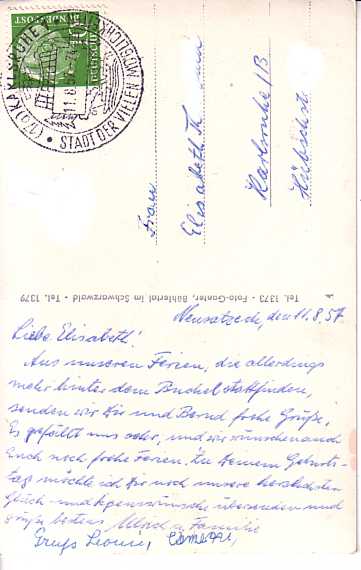 (17a) KARLSRUHE
STADT DER VIELEN MÖGLICHKEITEN
DEUTSCHE BUNDESPOST
10
11.8.
Frau
Elisabeth Th
Karlsruhe/B
Hübschstr
Tel. 1373 · Foto-Ganter, Bühlertal im Schwarzwald · Tel. 1379
Neusatzeck, den 11.8.57.
Liebe Elisabeth!
Aus unseren Ferien, die allerdings
mehr unter dem Buchel stattfinden,
senden wir Dir und Bernd frohe Grüße,
Es gefällt uns sehr, und wir wünschen auch
Euch noch frohe Ferien. Zu Deinem Geburts-
tag möchte ich Dir noch unsere herzlichsten
Glück- und Segenswünsche übersenden und
grüße bestens Ulrich u. Familie
Gruß Leonie,